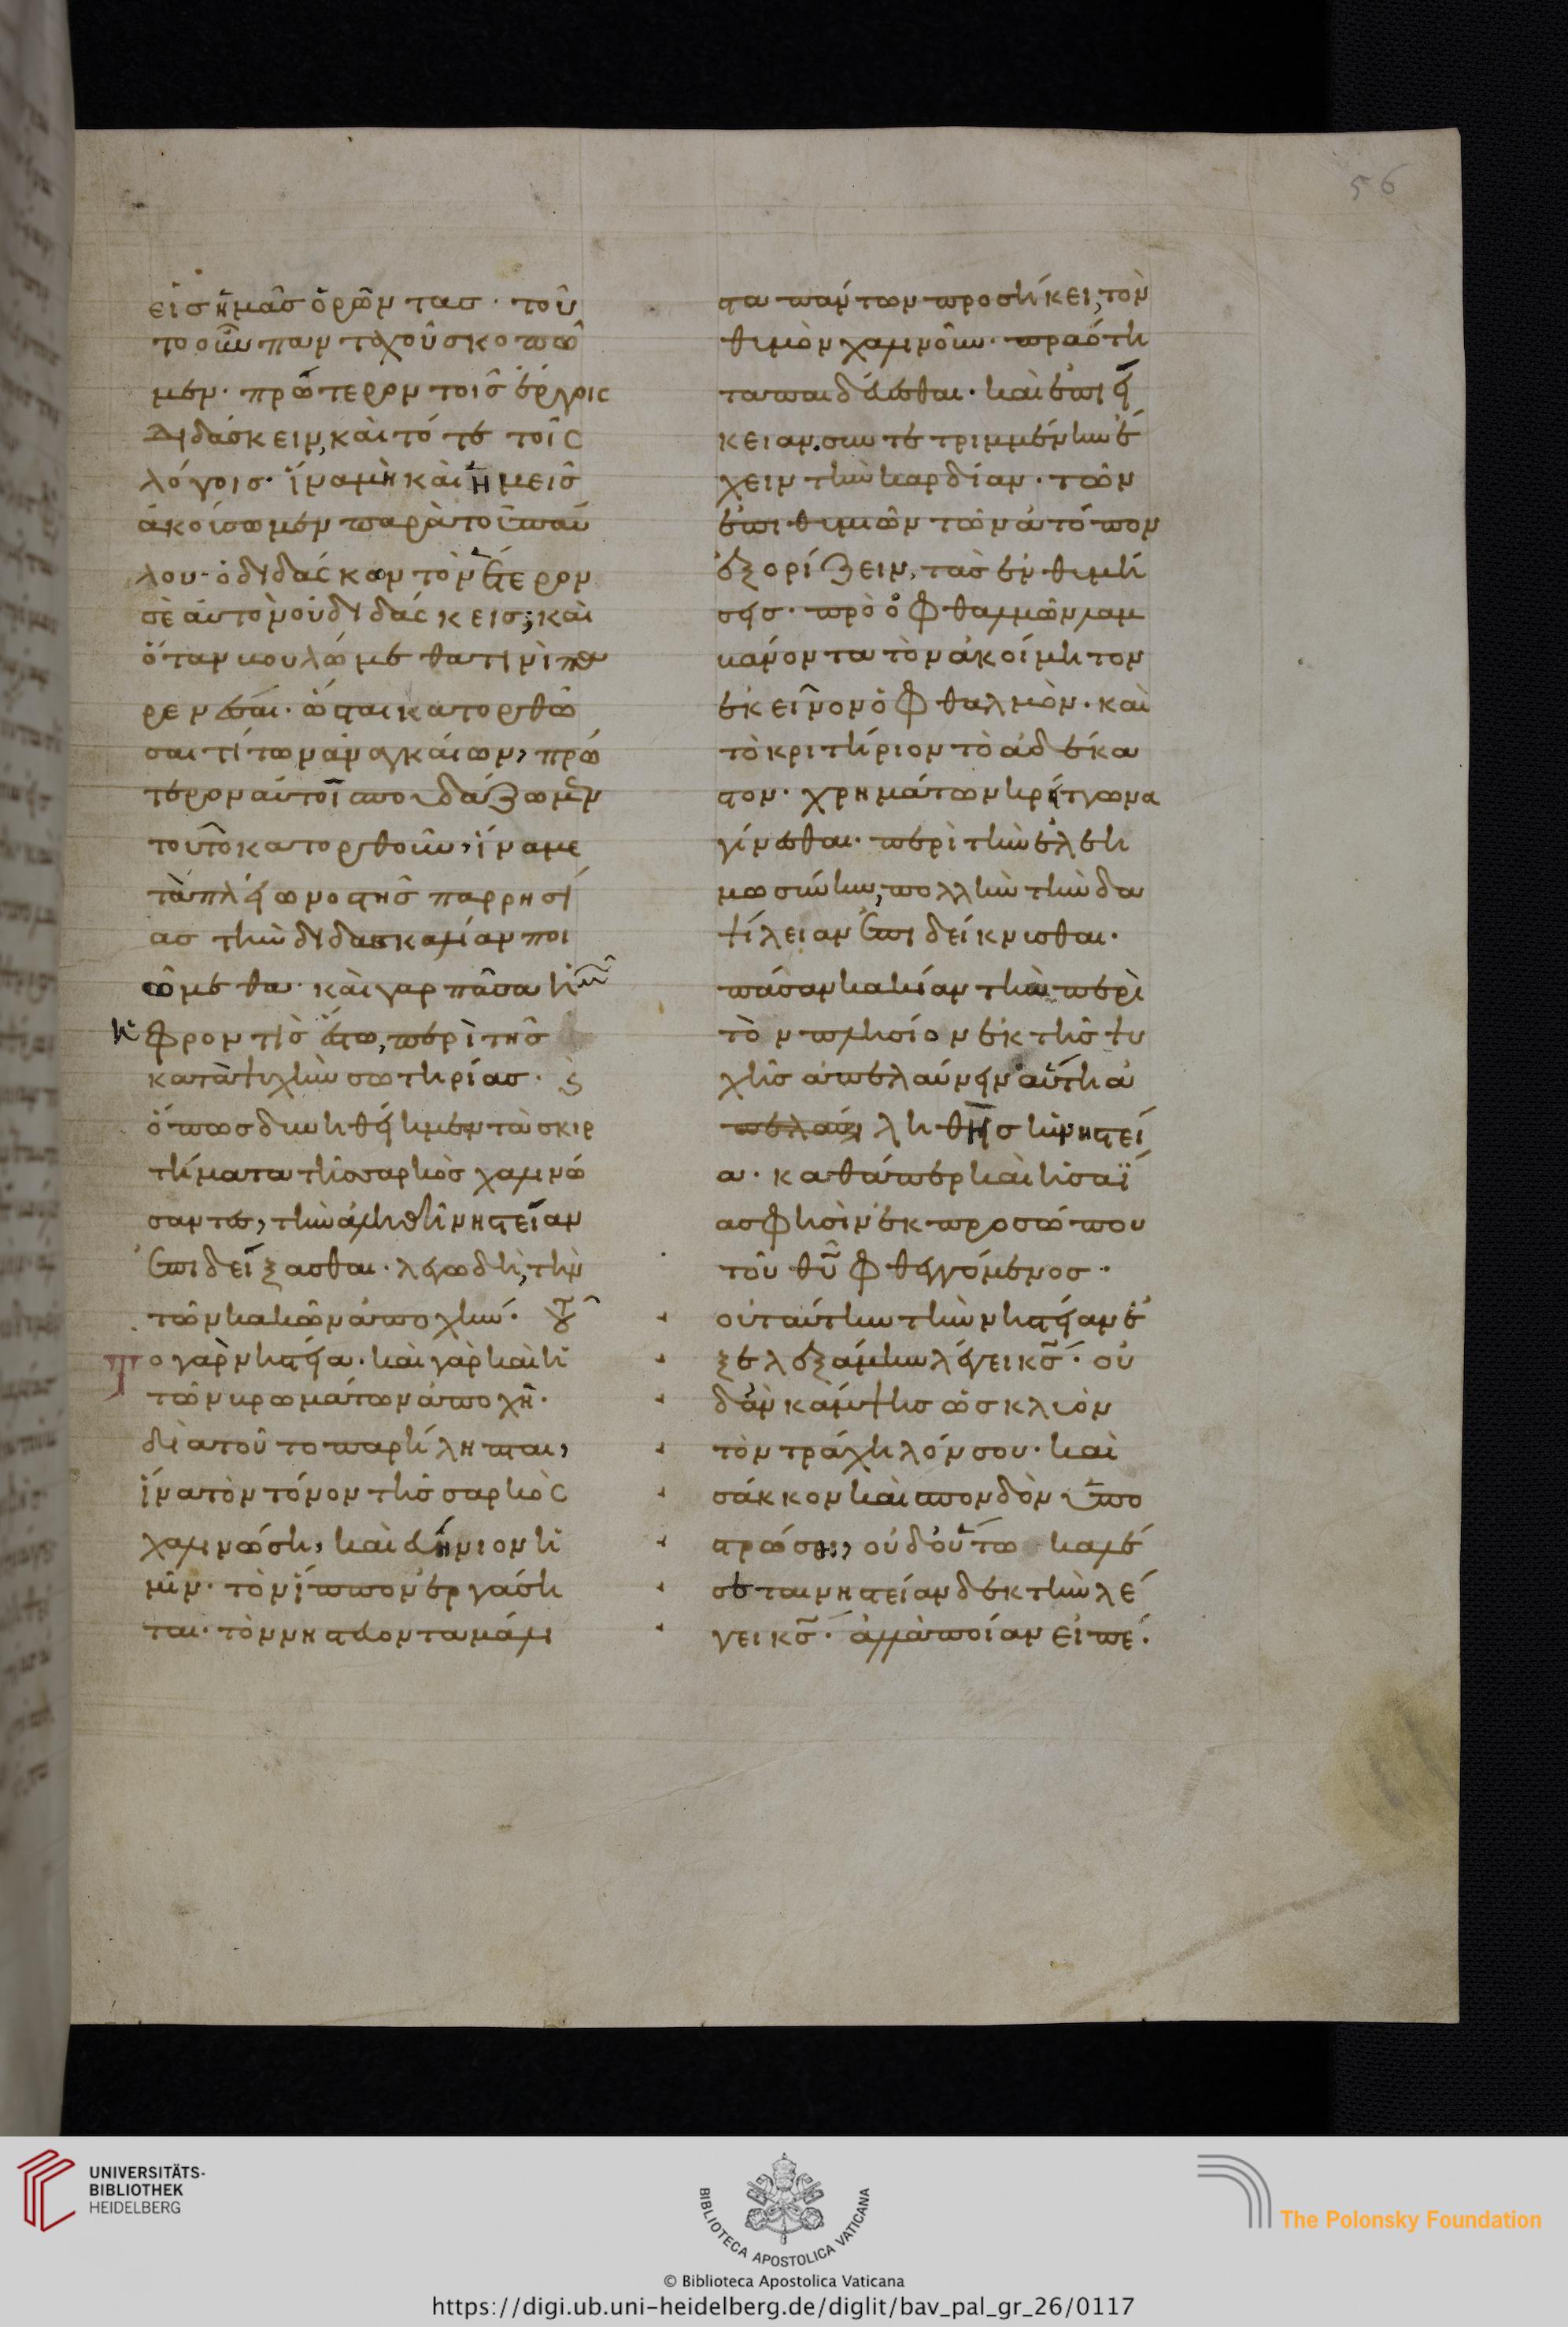 56
εἰσ ἡμᾶσ ὁρῶντασ· τοῦ
το οὖν πανταχοῦ σκοπῶ
μεν· πρώτερον τοῖσ ἔργοις
διδάσκειν, καὶ τότε τοῖς
λόγοισ· ἵνα μὴ καὶ ἡμεῖσ
ἀκούσωμεν παρὰ τοῦ παύ
λου· ὁ διδάσκων τὸν ἕτερον
σὲ αὐτὸν οὐ διδάσκεισ; καὶ
ὅταν βουλώμεθα τινὶ πα
ραινέσαι· ὥστε κατορθῶ
σαι τί τῶν ἀναγκαίων, πρώ
τερον αὐτοὶ σπουδάζωμεν
τοῦτο κατορθοῦν, ἵνα με
τὰ πλείωνοσ τῆσ παρρησί
ασ τὴν διδασκαλίαν ποι
ώμεθα· καὶ γαρ πᾶσα ἡμῖν
φροντὶσ ἔστω, περὶ τῆσ
κατὰ ψυχὴν σωτηρίασ·
ὅπωσ δυνηθείημεν τὰ σκιρ
τήματα τῆσ σαρκὸσ χαλινώ
σαντεσ, τὴν ἀληθῆ νηστείαν
ἐπιδείξασθαι· λέγω δὴ, τὴν
τῶν κακῶν ἀποχήν· τοῦτ
ο γὰρ νηστεία· καὶ γὰρ καὶ ἡ
τῶν βρωμάτων ἀποχὴ·
διὰ τοῦτο παρήληπται,
ἵνα τὸν τόνον τῆσ σαρκὸς
χαλινώση, καὶ εὐήνιον ἡ
μῖν· τὸν ἵππον ἐργάση
ται· τὸν νηστεύοντα μάλι
στα πάντων προσήκει, τὸν
θυμὸν χαλινοῦν· πραότη
τα παιδεύεσθαι· καὶ ἐπιεί
κειαν. συντετριμμένην ἔ
χειν τὴν καρδίαν· τῶν
ἐπιθυμιῶν τῶν ἀτόπων
ἐξορίζειν, τὰσ ἐνθυμή
σεισ· πρὸ ὀφθαλμῶν λαμ
βάνοντα τὸν ἀκοίμητον
ἐκεῖνον ὀφθαλμὸν· καὶ
τὸ κριτήριον τὸ ἀδέκα
στον· χρημάτων κρείττωνα
γίνεσθαι· περὶ τὴν ἐλεη
μωσύνην, πολλὴν τὴν δα
ψίλειαν ἐπιδείκνυσθαι·
πάσαν κακίαν τὴν περὶ
τὸν πλησίον ἐκ τῆσ ψυ
χῆσ ἀπελαύνειν· αὕτη ἀ
ληθὴσ ἡ νηστεί
α· καθάπερ καὶ ἡσαΐ
ασ φησὶν ἐκ προσώπου
τοῦ θῦ φθεγγόμενοσ·
οὐ ταύτην τὴν νηστείαν ἐ
ξελεξάμην λέγει κσ· οὐ
δ᾽ ἂν κάμψησ ὡσ κλιὸν
τὸν τράχηλόν σου· καὶ
σάκκον καὶ σποδὸν ὑπο
στρώσηι, οὐδ᾽ οὕτω καλέ
σεται νηστείαν δεκτὴν λέ
γει κσ· ἀλλὰ ποίαν εἰπέ.
UNIVERSITÄTS-
BIBLIOTHEK
HEIDELBERG
BIBLIOTECA APOSTOLICA VATICANA
The Polonsky Foundation
© Biblioteca Apostolica Vaticana
https://digi.ub.uni-heidelberg.de/diglit/bav_pal_gr_26/0117